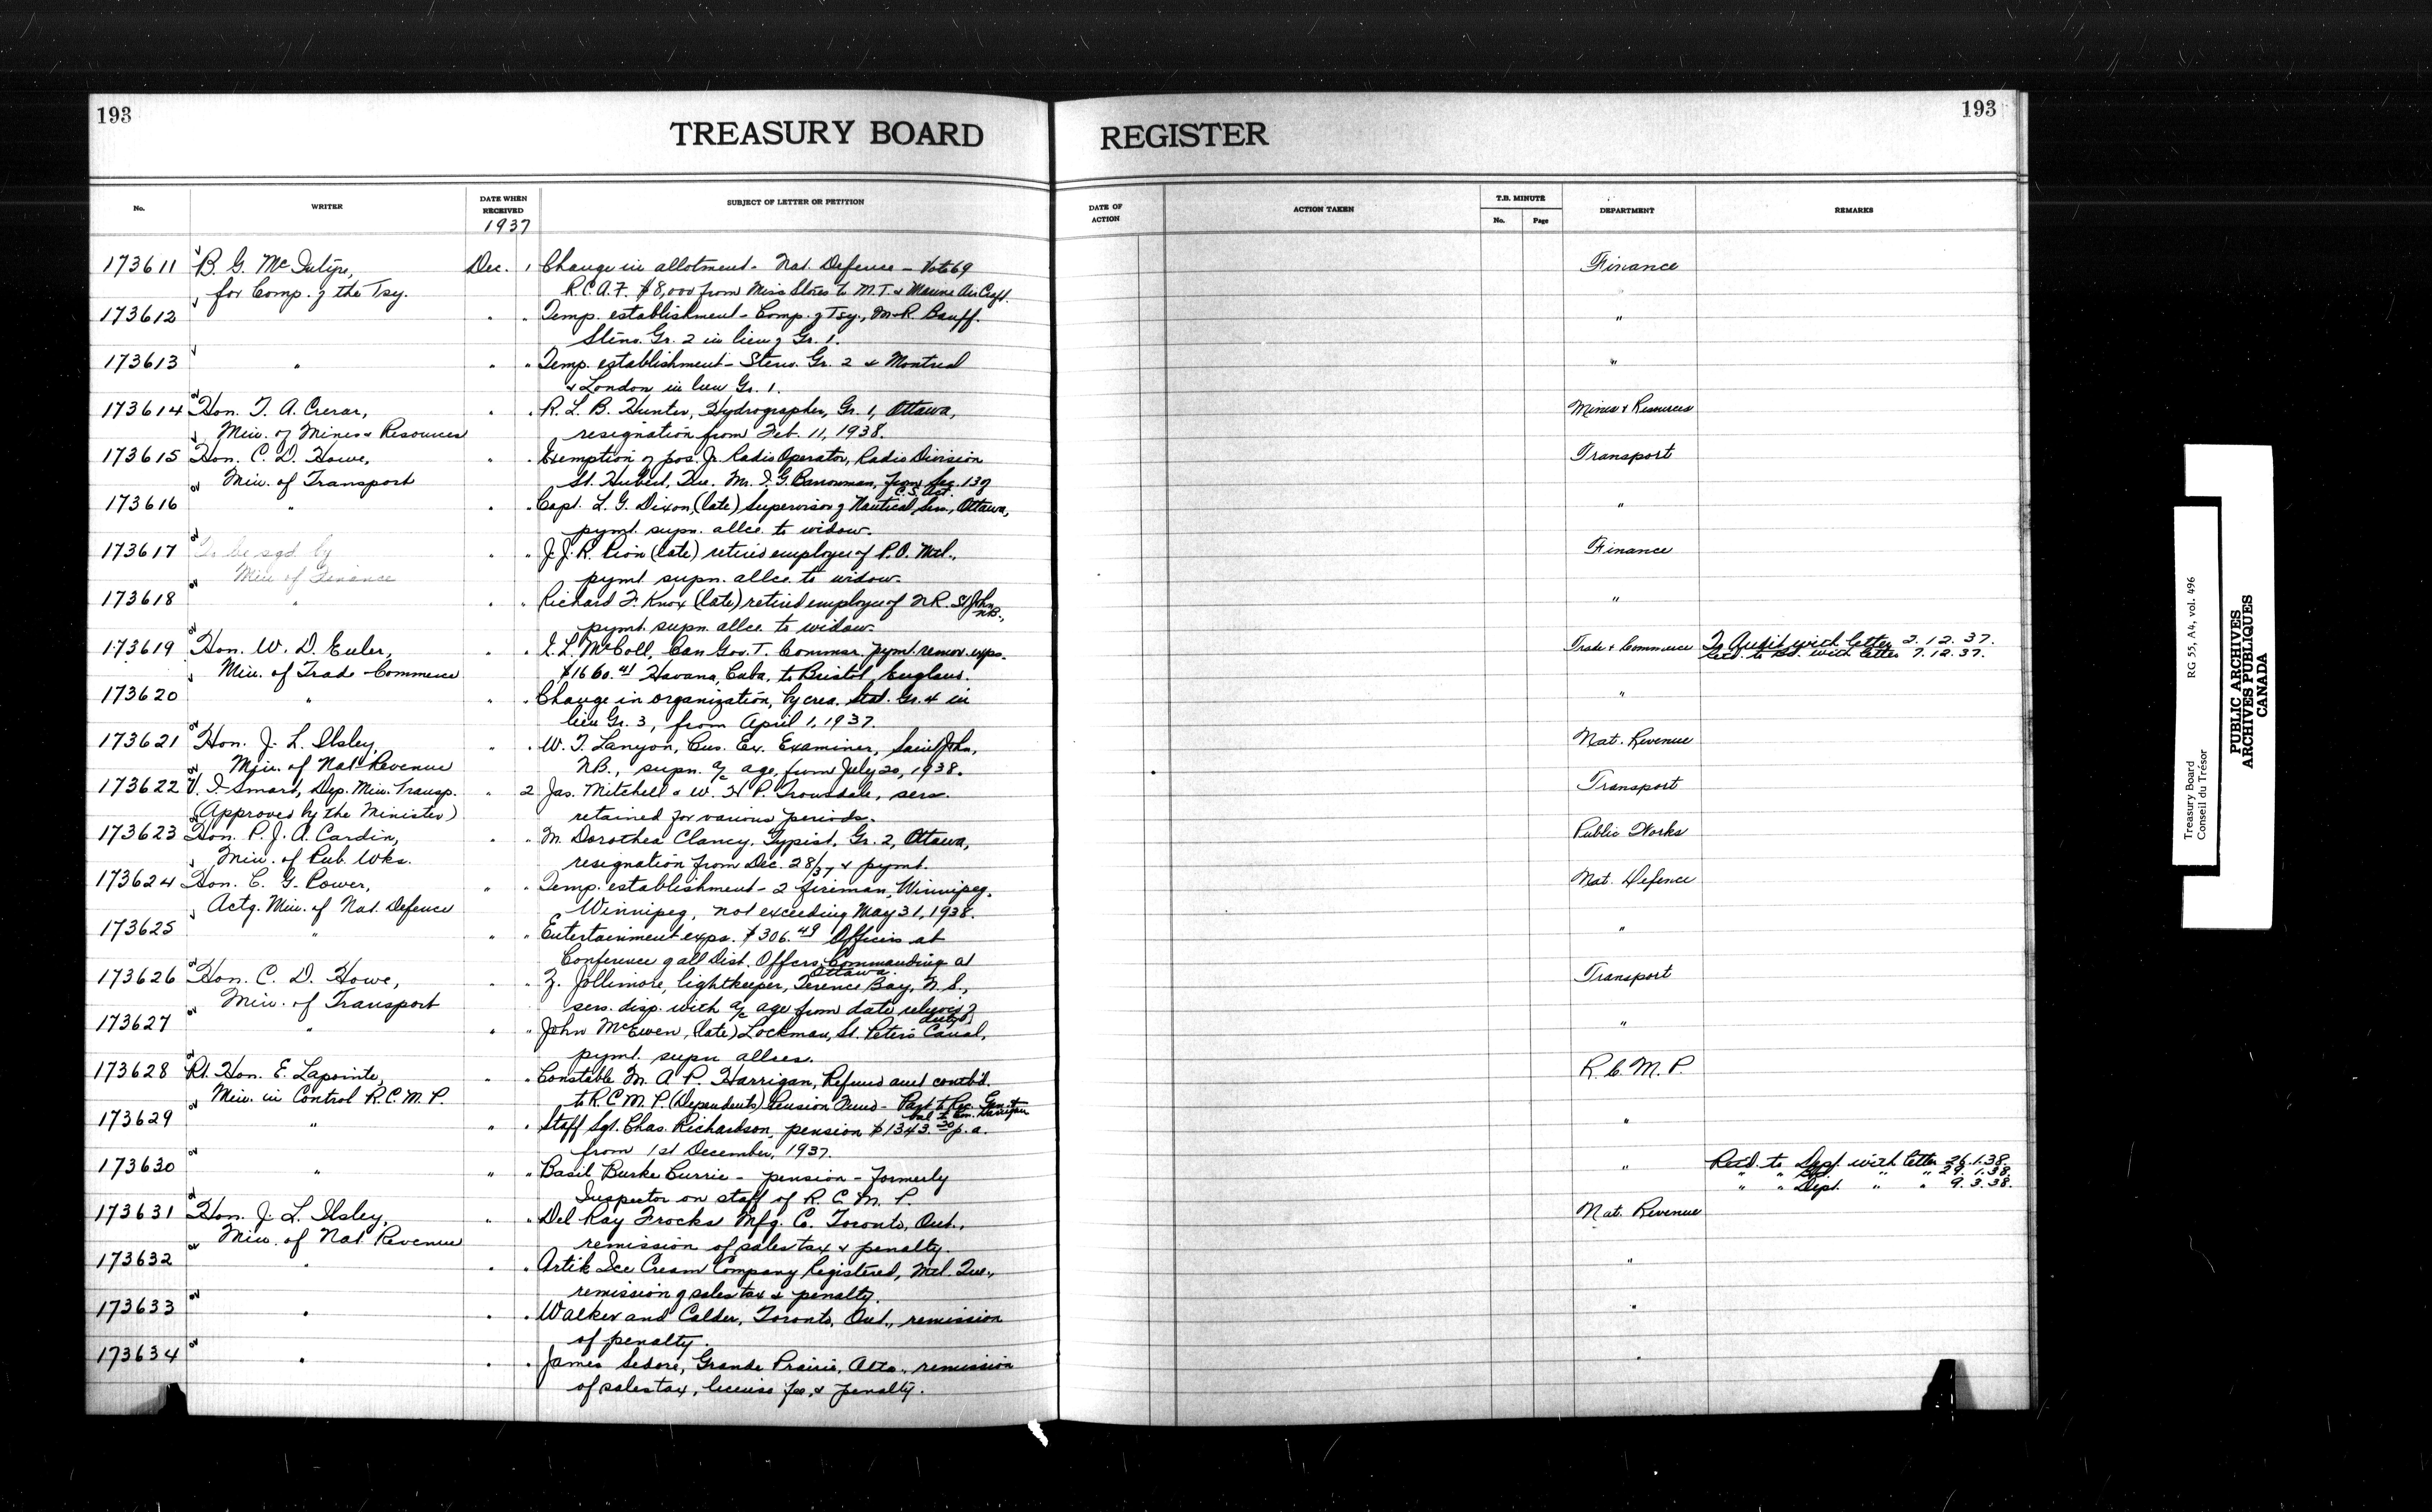 193
193
TREASURY BOARD REGISTER
No.
WRITER
DATE WHEN RECEIVED
1937
SUBJECT OF LETTER OR PETITION
DATE OF ACTION
ACTION TAKEN
T.B. MINUTE
No.
Page
DEPARTMENT
REMARKS
173611 B. G. McIntyre, Dec. 1 Change in allotment - Nat. Defence - Vote 69 Finance
for Comp. of the Tsy. R.C.A.F. $8,000 from Misc Stores to M.T. & Marine Air Craft.
173612 " " Temp. establishment - Comp. of Tsy., M.R. Banff. "
Steno. Gr. 2 in lieu of Gr. 1.
173613 " " " Temp. establishment - Steno. Gr. 2 & Montreal "
& London in lieu Gr. 1.
173614 Hon. T. A. Crerar, " " R. L. B. Hunter, Hydrographer, Gr. 1, Ottawa, Mines & Resources
Min. of Mines & Resources resignation from Feb. 11, 1938.
173615 Hon. C. D. Howe, " " Exemption of pos. Jr. Radio Operator, Radio Division Transport
Min. of Transport St. Hubert, Que. Mr. I. G. from Sec. 13 of
C.S. Act.
173616 " " " Capt. L. G. Dixon, (late) Supervisor of Nautical Ser., Ottawa, "
pymt. supn. allce. to widow.
173617 To be sgd. by " " J. J. R. Pion (late) retired employee of P.O. Mtl., Finance
Min of Finance pymt supn. allce. to widow.
173618 " " " Richard F. Knox (late) retired employee of N.R. St John, "
N.B.,
pymt. supn. allce. to widow.
173619 Hon. W. D. Euler, " " L. McColl, Can Gov. T. Commr. pymt. remov. exps. Trade & Commerce To Audit with letter 2.12.37.
Retd. to Bd. with letter 7.12.37.
Min. of Trade & Commerce $1660.41 Havana, Cuba, to Bristol, England.
173620 " " " Change in organization, by crea. Stat. Gr. 4 in "
lieu Gr. 3, from April 1, 1937.
173621 Hon. J. L. Ilsley, " " W. T. Lanyon, Cus. Ex. Examiner, Saint John, Nat. Revenue
Min. of Nat Revenue N.B., supn. a/c age, from July 20, 1938.
173622 V. I. Smart, Dep. Min. Transp. " 2 Jas. Mitchell & W. H. P. Trousdale, serv. Transport
(Approved by the Minister) retained for various periods.
173623 Hon. P. J. A. Cardin, " " M. Dorothea Clancy, Typist, Gr. 2, Ottawa, Public Works
Min. of Pub. Wks. resignation from Dec. 28/37 & pymt.
173624 Hon. C. G. Power, " " Temp. establishment - 2 fireman, Winnipeg, Nat. Defence
Actg. Min. of Nat. Defence Winnipeg, not exceeding May 31, 1938.
173625 " " " Entertainment exps. $306.49 Officers at "
Conference of all Dist. Offcrs. Commanding at
Ottawa.
173626 Hon. C. D. Howe, " " Z. Jollimore, lightkeeper, Terence Bay, N.S., Transport
Min. of Transport serv. disp. with a/c age from date relieved of
duty.
173627 " " " John McEwen, (late) Lockman, St. Peter's Canal, "
pymt. supn allces.
173628 Rt. Hon. E. Lapointe, " " Constable M. A. P. Harrigan, Refund amt contb'd. R.C.M.P.
Min. in Control R.C.M.P. to R.C.M.P. (Dependents) Pension Fund - Part to Rec. Gen. &
bal. to Con. Harrigan
173629 " " " Staff Sgt. Chas. Richardson, pension $1343.30 p.a. "
from 1st December, 1937.
173630 " " " Basil Burke Currie - pension - formerly " Retd. to Dept. with letter 26.1.38.
Inspector on staff of R.C.M.P. " " Bd. " " 29.1.38.
" " Dept. " " 9.3.38.
173631 Hon. J. L. Ilsley, " " Del Ray Frocks Mfg. C. Toronto, Ont., Nat. Revenue
Min. of Nat Revenue remission of sales tax & penalty.
173632 " " " Artik Ice Cream Company Registered, Mtl. Que., "
remission of sales tax & penalty.
173633 " " " Walker and Calder, Toronto, Ont., remission "
of penalty.
173634 " " " James Sedore, Grande Prairie, Alta., remission "
of sales tax, license fee, & penalty.
Treasury Board RG 55, A4, vol. 496
Conseil du Trésor
PUBLIC ARCHIVES
ARCHIVES PUBLIQUES
CANADA